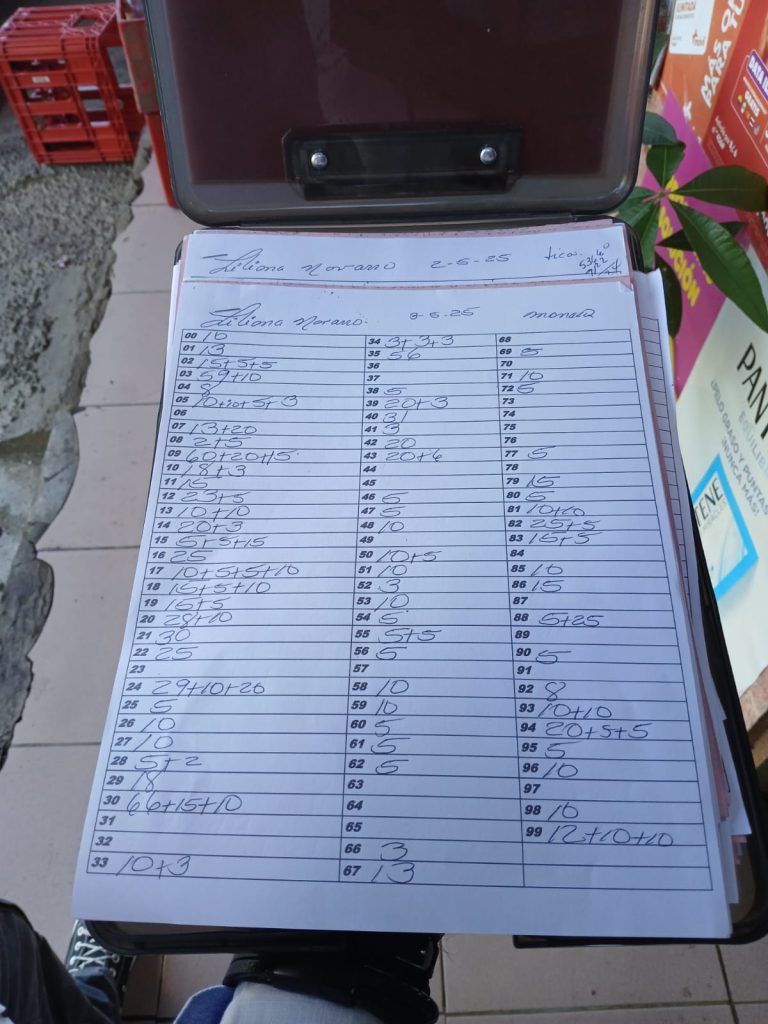 Liliana Novarro 2-5-25 ticos
Liliana Novarro. 2-5-25
00 10
01 13
02 15+5+5
03 59+10
04 8
05 10+10+5+3
06
07 13+20
08 2+5
09 60+20+15
10 18+3
11 15
12 23+5
13 10+10
14 20+3
15 5+5+15
16 25
17 10+5+5+10
18 15+5+10
19 15+5
20 28+10
21 30
22 25
23
24 29+10+20
25 5
26 10
27 10
28 5+2
29 18
30 66+15+10
31
32
33 10+3
34 3+3+3
35 56
36
37
38 5
39 20+3
40 31
41 3
42 20
43 20+6
44
45
46 5
47 5
48 10
49
50 10+5
51 10
52 3
53 10
54 5
55 5+5
56 5
57
58 10
59 10
60 5
61 5
62 5
63
64
65
66 3
67 13
68
69 5
70
71 10
72 5
73
74
75
76
77 5
78
79 15
80 5
81 10+10
82 25+5
83 15+5
84
85 10
86 15
87
88 5+25
89
90 5
91
92 8
93 10+10
94 20+5+5
95 5
96 10
97
98 10
99 12+10+10
ILIMITADA
MÁS
PARA TU
GRATIS
PANT
¿PELO GRASO Y PUNTAS
¡NUNCA MÁS!